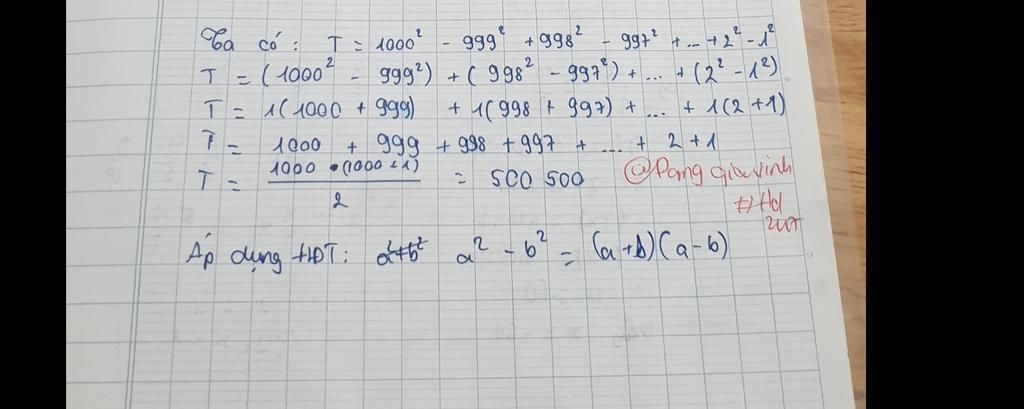 Ta có: T = 1000² - 999² + 998² - 997² + ... + 2² - 1²
T = (1000² - 999²) + (998² - 997²) + ... + (2² - 1²)
T = 1(1000 + 999) + 1(998 + 997) + ... + 1(2 + 1)
T = 1000 + 999 + 998 + 997 + ... + 2 + 1
T = 1000 • (1000 + 1) / 2 = 500 500
@Dang gia vinh
Áp dụng HĐT: a² - b² = (a + b)(a - b)